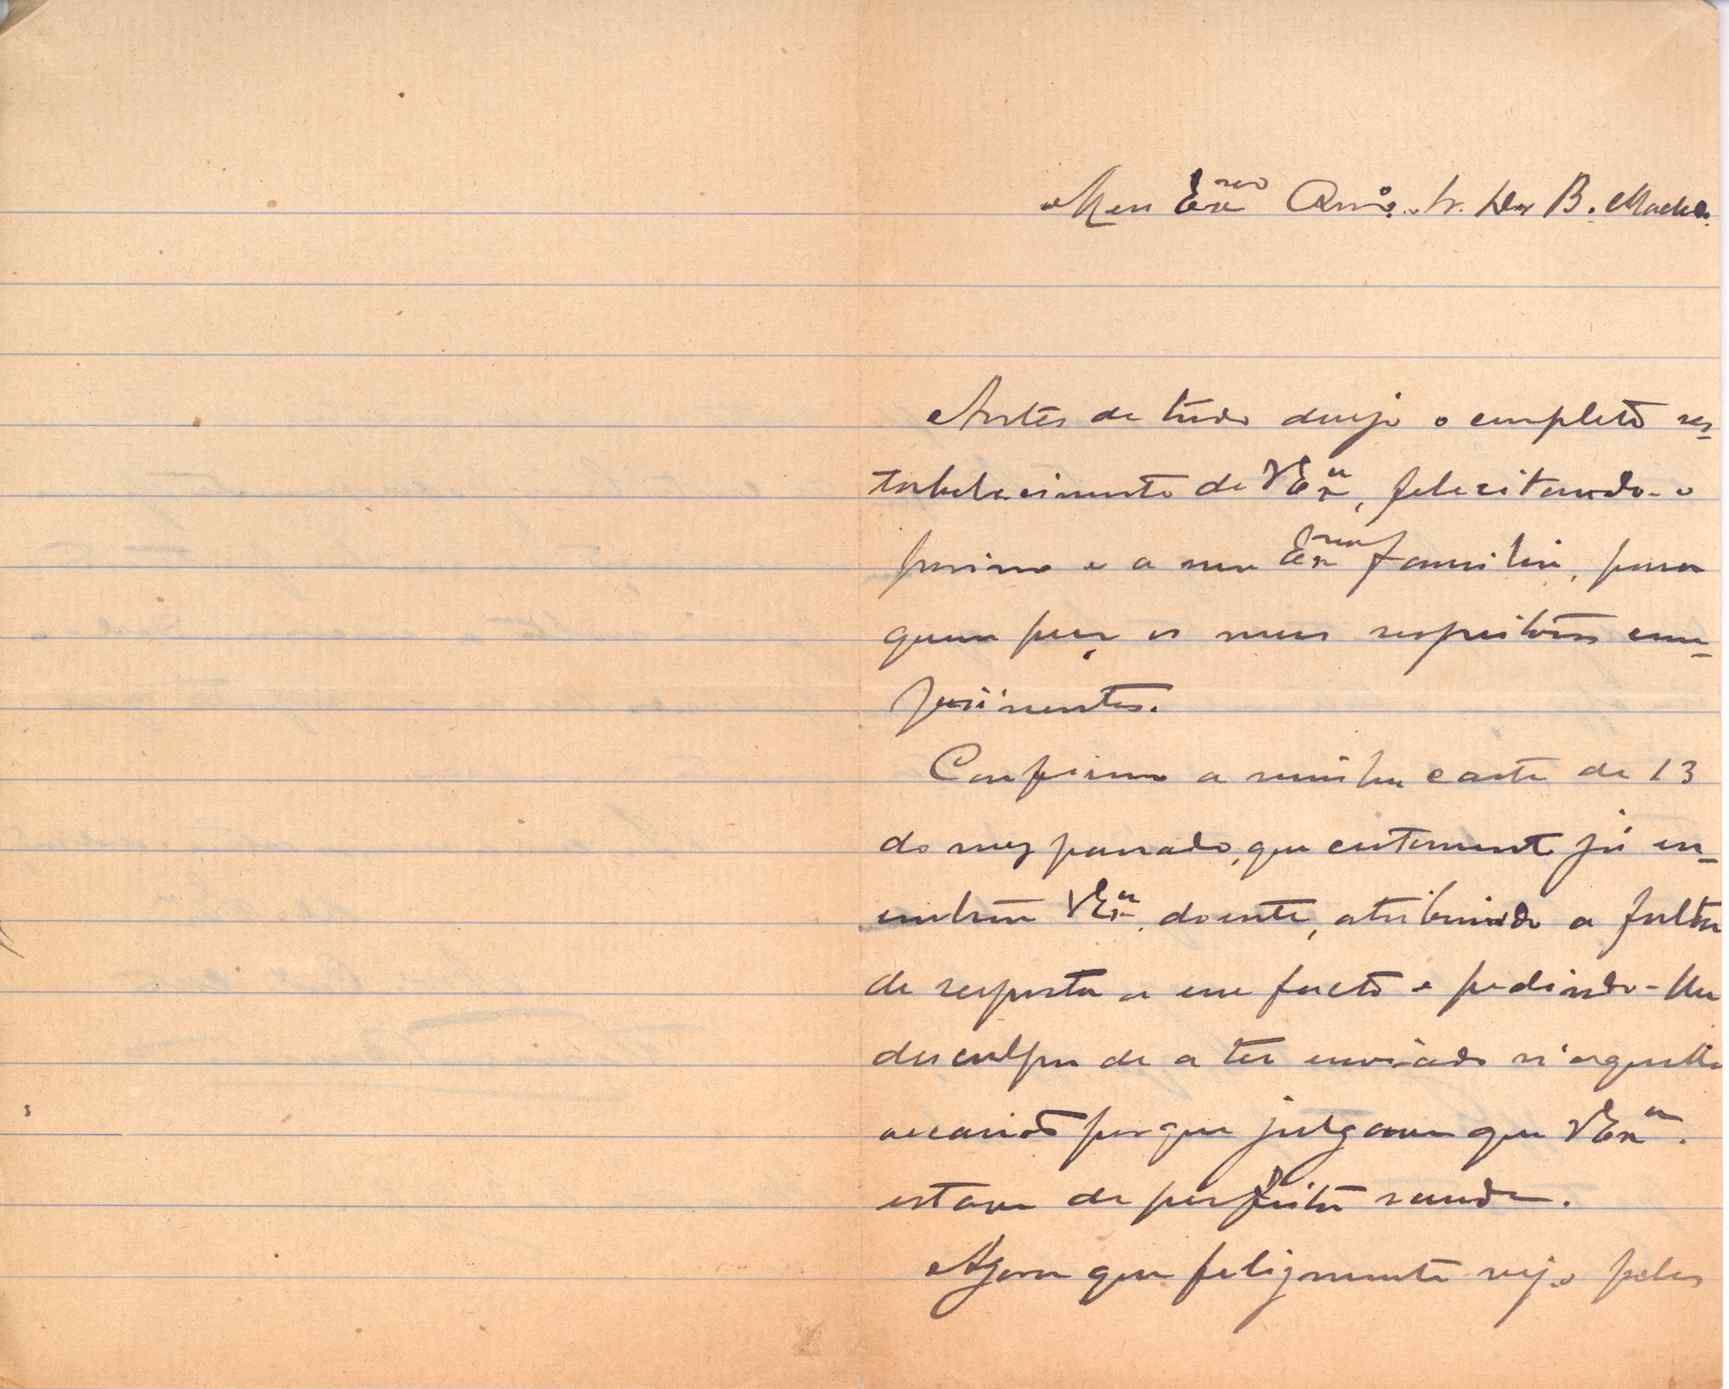 Meu Exmo Amo. Sr. Dor B. Machdo.
Antes de tudo desejo o completo res-
tabelecimento de V Exa, felicitando-o
por isso e a sua Exma familia, para
quem peço os meus respeitosos cum-
primentos.
Confirmo a minha carta de 13
do mez passado, que certamente já en-
controu V Exa. doente, atribuindo a falta
de resposta a esse facto e pedindo-lhe
desculpa de a ter enviado n'aquella
occasião porque julgava que V Exa.
estava de perfeita saude.
Agora que felizmente vejo pelos